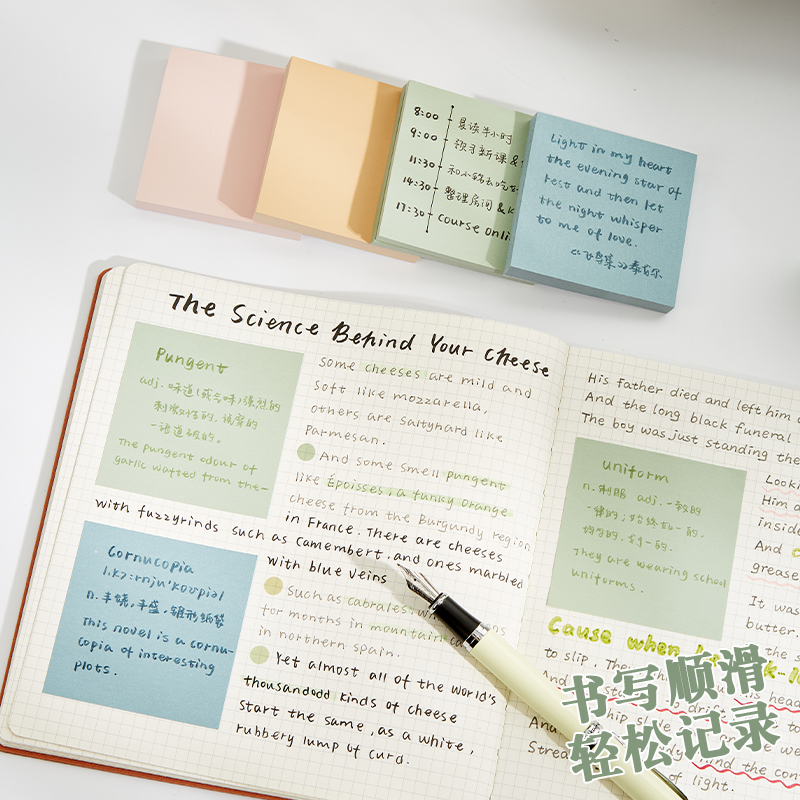 8:00
晨读半小时
9:00
预习新课 &
11:30
和小铭去吃
14:30
整理房间 & K
17:30
Course onli
Light in my heart
the evening star of
rest and then let
the night whisper
to me of love.
《飞鸟集》泰戈尔
The Science Behind Your Cheese
Pungent
adj. 味道(或气味)强烈的
刺激性的, 说穿的
一语道破的.
The pungent odour of
garlic wafted from the-
Some cheeses are mild and
soft like mozzarella,
others are saltyhard like
Parmesan.
And some smell pungent
like Époisses, a funky orange
cheese from the Burgundy region
in France. There are cheeses
with fuzzyrinds such as Camembert, and ones marbled
with blue veins
Cornucopia
n. 丰饶, 丰盛, 锥形纸袋
This novel is a cornu-
copia of interesting
plots.
Such as cabrales,
for months in mountain ca
in northern spain.
Yet almost all of the world's
thousandodd kinds of cheese
start the same, as a white,
rubbery lump of curd.
His father died and left him
And the long black funeral
The boy was just standing the
uniform
n. 制服 adj. 一致的
一律的; 始终如一的.
均匀的, 划一的.
They are wearing school
uniforms.
Looki
Him a
inside
And
grease
It was
butter.
the s
Cause when
k-l
to slip. The
his head
And
drif
to
ship slide
t we
And
Strea
mind the con
of light.
书写顺滑
轻松记录